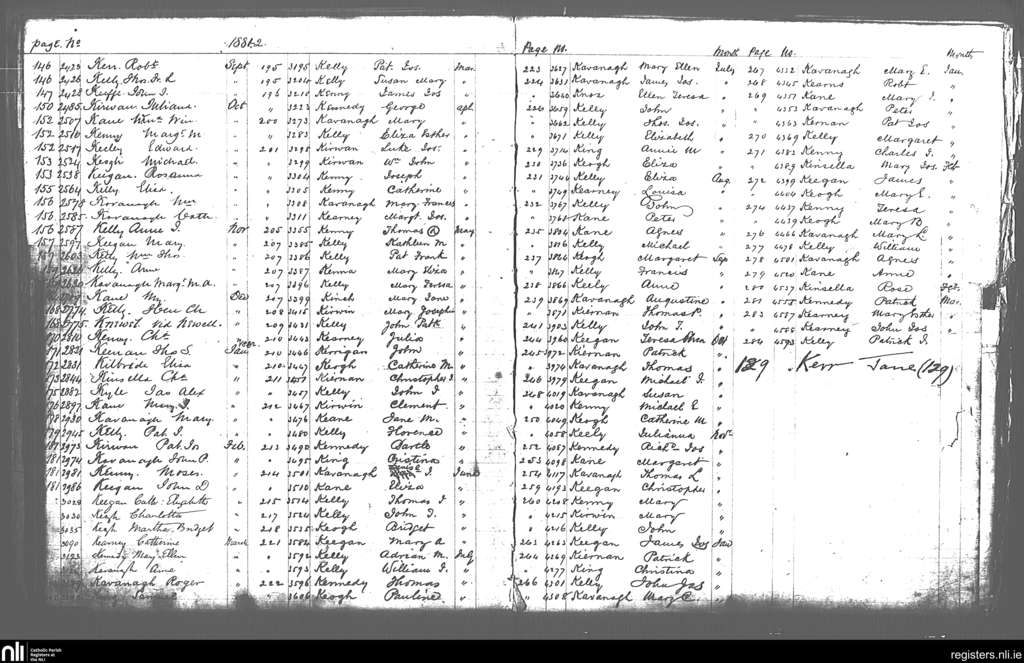 page. No 1881-2
146 2423 Kerr Robt Sept
146 2426 Kelly Thos.
147 2428 Keeffe John J.
150 2485 Kirwan Juliana Oct
152 2507 Kane Wm
152 2510 Kenny Margt M
152 2517 Keeley Edward
153 2524 Keogh Michael
153 2538 Keigan Rosanna
155 2564 Kelly Eliza
156 2578 Kavanagh Wm
156 2585 Kavanagh Cath
156 2587 Kelly Annie J. Nov
157 2597 Keegan Mary
2603 Kelly Wm Thos.
Kelly Anne
Kavanagh Margt M. A.
Kane My Dec
Kelly
Kenny Chs
171 2821 Keenan Thos S. Jany
172 2831 Kilbride Eliza
173 2844 Kinsella Chs
175 2882 Kyle Jas Alex
176 2897 Kane Mary J.
2930 Kavanagh Mary
179 2945 Kelly Pat J.
181 2973 Kirwan Pat. Jos Feb.
181 2974 Kavanagh John P.
181 2981 Kenny Moses
181 2986 Keegan John D
3028 Keegan Cath: Elizabeth
3030 Keogh Charlotte
3035 Keogh Martha Bridget
3090 Kearney Catherine March
Mary Ellen
Kavanagh Anne
Kavanagh Roger
195 3195 Kelly Pat Jos. Mar
195 3204 Kelly Susan Mary "
196 3210 Kenny James Jos "
" 3223 Kennedy George apl
200 3273 Kavanagh Mary "
" 3283 Kelly Eliza Esther "
201 3295 Kirwan Luke Jos. "
" 3299 Kirwan Wm John "
" 3304 Kenny Joseph "
" 3305 Kenny Catherine "
" 3308 Kavanagh Mary Frances "
" 3311 Kearney Margt. Jos. "
205 3355 Kenny Thomas May
207 3385 Kelly Kathleen M "
207 3386 Kelly Pat Frank "
207 3387 Kenna Mary Eliza "
207 3396 Kelly Mary Teresa "
207 3399 Kinch Mary Jane "
208 3415 Kirwin Mary Josephine "
209 3431 Kelly John Patk "
210 3443 Kearney Julia "
210 3446 Kerrigan John "
210 3447 Keogh Catherine M. "
211 3457 Kiernan Christopher J. "
" 3467 Kelly John J "
212 3467 Kirwin Clement "
" 3476 Kane Jane M. "
" 3480 Kelly Florence "
213 3490 Kennedy Bartle "
" 3495 King Cristina "
214 3501 Kavanagh J. June
" 3510 Kane Eliza "
215 3514 Kelly Thomas J "
217 3524 Kelly John J. "
218 3535 Keogh Bridget "
221 3582 Keegan Mary A "
" 3592 Kelly Adrian M. July
" 3593 Kelly William J. "
222 3596 Kennedy Thomas "
" 3606 Keogh Pauline "
Page No. Month
223 3627 Kavanagh Mary Ellen July
224 3631 Kavanagh James Jos. "
" 3640 Knox Ellen Teresa "
226 3659 Kelly John "
" 3662 Kelly Thos. Jos. "
" 3671 Kelly Elizabeth "
229 3714 King Annie M "
230 3736 Keogh Eliza "
231 3746 Kelly Eliza Aug.
" 3749 Kearney Louisa "
232 3767 Kelly John "
" 3768 Kane Peter "
235 3804 Kane Agnes "
" 3816 Kelly Michael "
237 3826 Keogh Margaret Sep
" 3847 Kelly Francis "
238 3866 Keely Anne "
239 3869 Kavanagh Augustine "
" 3871 Kiernan Thomas P. "
241 3903 Kelly John J. "
244 3960 Keegan Teresa Oct
245 3972 Kiernan Patrick "
" 3974 Kavanagh Thomas "
246 3979 Keegan Michael J. "
248 4019 Kavanagh Susan "
" 4020 Kenny Michael E "
250 4049 Keogh Catherine M "
" 4058 Keely Julianna Nov.
252 4087 Kennedy Richd Jos "
253 4098 Kane Margaret "
254 4117 Kavanagh Thomas L "
259 4193 Keegan Christopher "
260 4208 Kenny Mary "
" 4215 Kirwin Mary "
" 4216 Kelly John "
263 4263 Keegan James Jos Jan
264 4269 Kiernan Patrick "
" 4277 King Christina "
266 4301 Kelly John Jas "
" 4308 Kavanagh Mary C. "
Page No. Month
267 4332 Kavanagh Mary E. Jan
268 4345 Kearns Robt "
269 4351 Kane Mary J. "
" 4353 Kavanagh Peter "
" 4363 Kernan Pat Jos "
270 4369 Kelly Margaret "
271 4382 Kenny Charles J. "
" 4389 Kinsella Mary Jos Feb
272 4399 Keegan James "
" 4404 Keogh Mary E. "
274 4437 Kenny Teresa "
" 4439 Keogh Mary B "
276 4466 Kavanagh Mary L "
277 4478 Kelly William "
278 4501 Kavanagh Agnes "
279 4520 Kane Anne "
280 4537 Kinsella Rose Feb.
281 4555 Kennedy Patrick Mar.
283 4587 Kearney Mary Esther "
" 4588 Kearney John Jos "
284 4593 Kelly Patrick J. "
129 Kerr Jane (129)
nli Catholic Parish Registers at the NLI
registers.nli.ie